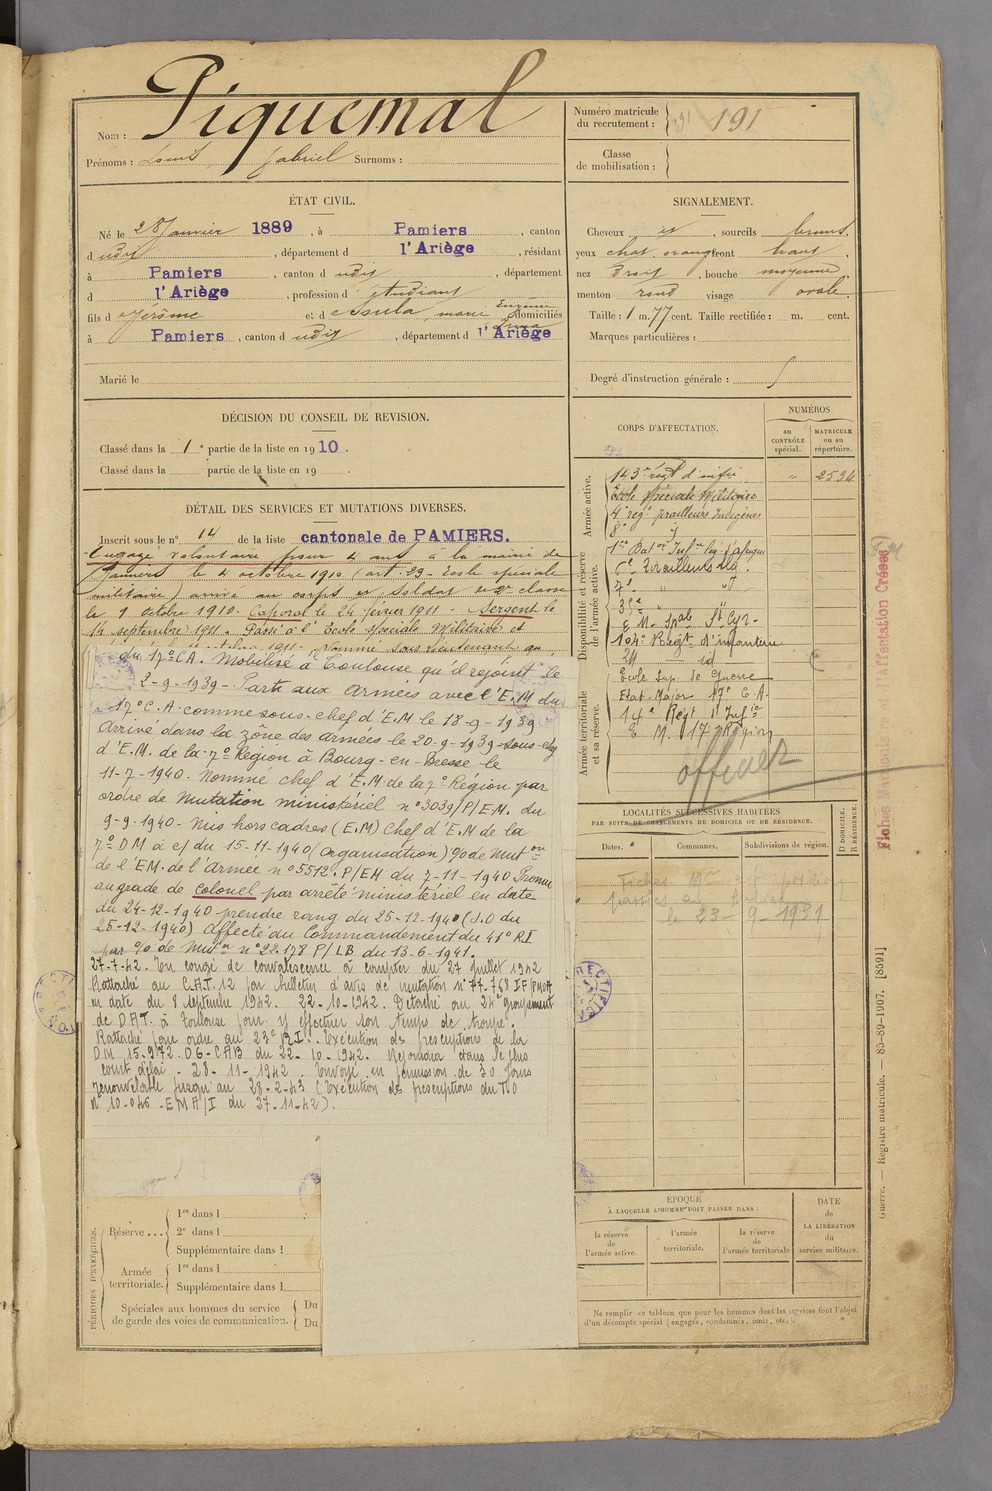 Piquemal
Nom :
Prénoms : Louis Gabriel Surnoms :
Numéro matricule
du recrutement : 191
Classe
de mobilisation :
ÉTAT CIVIL.
Né le 28 Janvier 1889, à Pamiers, canton
dudit, département d l'Ariège, résidant
à Pamiers, canton d udit, département
d l'Ariège, profession d' étudiant
fils d Jérôme et d Assula, marie Eugénie domiciliés
à Pamiers, canton d udit, département d l'Ariège
Marié le
SIGNALEMENT.
Cheveux et, sourcils bruns,
yeux chat. orangé front haut,
nez Droit, bouche moyenne
menton rond visage ovale.
Taille : 1 m. 77 cent. Taille rectifiée : m. cent.
Marques particulières :
Degré d'instruction générale : 5
DÉCISION DU CONSEIL DE REVISION.
Classé dans la 1e partie de la liste en 1910.
Classé dans la partie de la liste en 19 .
DÉTAIL DES SERVICES ET MUTATIONS DIVERSES.
Inscrit sous le n° 14 de la liste cantonale de PAMIERS.
Engagé volontaire pour 4 ans à la mairie de
Pamiers le 4 octobre 1910 (art. 23. Ecole spéciale
militaire) arrivé au corps et Soldat de 2e classe
le 9 Octobre 1910. Caporal le 24 février 1911. Sergent le
14 septembre 1911. Passé à l'Ecole spéciale Militaire et
1911. Nommé Sous-Lieutenant au
du 17° C.A. Mobilisé à Toulouse qu'il rejoint le
2-9-1939 - Parti aux Armées avec l'E.M du
17° C.A. comme sous-chef d'E.M le 18-9-1939
Arrivé dans la zône des armées le 20-9-1939 - Sous-chef
d'E.M. de la 7° Région à Bourg-en-Bresse le
11-7-1940. Nommé chef d'E.M de la 7° Région par
ordre de Mutation ministériel n° 3039 P/E.M. du
9-9-1940 - Mis hors cadres (E.M) Chef d'E.M de la
7° DM à c/ du 15-11-1940 (Organisation) % de Muton
de l'EM. de l'Armée n° 5512. P/EM du 7-11-1940 Promu
au grade de colonel par arrêté ministériel en date
du 24-12-1940 prendre rang du 25-12-1940 (J.O du
25-12-1940) Affecté au Commandement du 41° R.I
par % de Muton n° 22.178 P/LB du 13-6-1941.
27-7-42. En congé de convalescence à compter du 27 juillet 1942
Rattaché au C.A.T. 12 par bulletin d'avis de mutation n° 77-768 IF/PMOA
en date du 8 septembre 1942. 22-10-1942. Détaché au 24e groupement
de D.A.T. à Toulouse pour y effectuer son temps de troupe.
Rattaché pour ordre au 23e R.I. Exécution des prescriptions de la
DM 15.972. D6-CAB du 22-10-1942. Rejoindra dans le plus
court délai. 28-11-1942 Envoyé en permission de 30 jours
renouvelable jusqu'au 28-2-43 (Exécution des prescriptions du TO
n° 10-046-EMA/I du 27-11-42).
CORPS D'AFFECTATION.
NUMÉROS
au
CONTRÔLE
spécial.
MATRICULE
ou au
répertoire.
Armée active.
143e régt d'infie " 2534
Ecole spéciale Militaire
4e régt tirailleurs Indigènes
8e "
Disponibilité et réserve
de l'armée active.
1er Baton Infie lég. d'Afrique
5e Tirailleurs Alg.
7e " "
E.M. Spale St Cyr.
104e Régt d'infanterie
24 id
Armée territoriale
et sa réserve.
Ecole Sup. de Guerre
Etat-Major 17e C.A.
14e Régt d'Infie
E.M. 17e Région
officier
LOCALITÉS SUCCESSIVES HABITÉES
PAR SUITE DE CHANGEMENTS DE DOMICILE OU DE RÉSIDENCE.
Dates.
Communes.
Subdivisions de région.
D DOMICILE.
R RÉSIDENCE.
le 23-9-1931
ÉPOQUE
À LAQUELLE L'HOMME DOIT PASSER DANS :
la réserve
de
l'armée active.
l'armée
territoriale.
la réserve
de
l'armée territoriale
DATE
de
LA LIBÉRATION
du
service militaire.
Ne remplir ce tableau que pour les hommes dont les services font l'objet
d'un décompte spécial (engagés, condamnés, omis, etc.).
PÉRIODES D'EXERCICES.
Réserve ...
1re dans l
2e dans l
Supplémentaire dans l
Armée
territoriale.
1re dans l
Supplémentaire dans l
Spéciales aux hommes du service
de garde des voies de communication.
Du
Du
Guerre. — Registre matricule. — 85-89-1907. [8591]